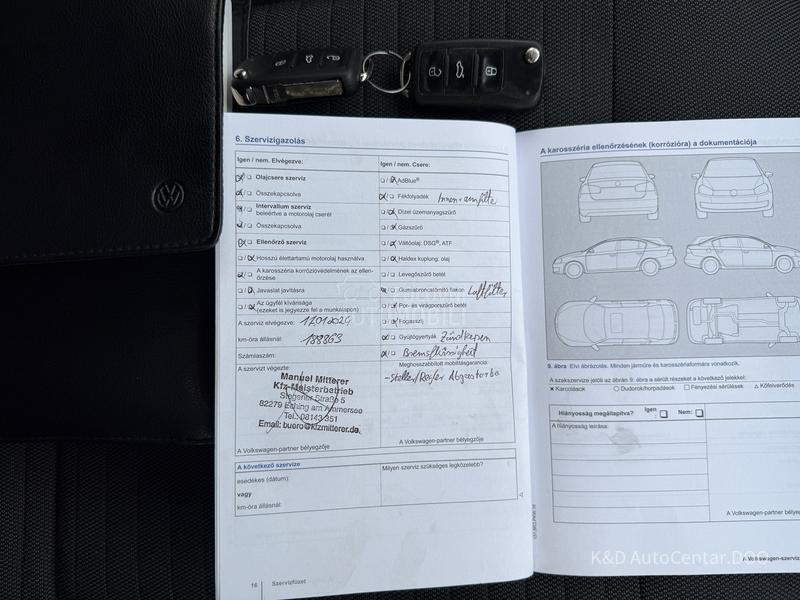 6. Szervizigazolás
Igen / nem. Elvégezve:
Olajcsere szerviz
Összekapcsolva
Intervallum szerviz
beleértve a motorolaj cserét
Összekapcsolva
Ellenőrző szerviz
Hosszú élettartamú motorolaj használva
A karosszéria korrózióvédelmének az ellen-
őrzése
Javaslat javításra
Az ügyfél kívánsága
(ezeket is jegyezze fel a munkalapon)
A szerviz elvégezve: 17.01.2024
km-óra állásnál: 188863
Számlaszám:
A szervizt végezte:
Manuel Mitterer
Kfz-Meisterbetrieb
82279 Eching am Ammersee
Tel.: 08143
Email: buero@kfzmitterer.de
A Volkswagen-partner bélyegzője
Igen / nem. Csere:
AdBlue®
Fékfolyadék
Dízel üzemanyagszűrő
Gázszűrő
Váltóolaj: DSG®, ATF
Haldex kuplung: olaj
Levegőszűrő betét
Gumiabroncstömítő flakon Luftfilter
Por- és virágporszűrő betét
Fogasszíj
Gyújtógyertyák Zündkerzen
Bremsflüssigkeit
Meghosszabbított mobilitásgarancia:
A Volkswagen-partner bélyegzője
A következő szervize
esedékes (dátum)
vagy
km-óra állásnál:
Milyen szerviz szükséges legközelebb?
16
Szervizfüzet
A karosszéria ellenőrzésének (korrózióra) a dokumentációja
9. ábra Elvi ábrázolás. Minden járműre és karosszériaformára vonatkozik.
A szakszervize jelöli az ábrán 9. ábra a sérült részeket a következő jelekkel:
Karcolások
Dudorok/horpadások
Fényezési sérülések
Kőfelverődés
Hiányosság megállapítva?
Igen
:
Nem:
A hiányosság leírása:
A Volkswagen-partner bélye
A Volkswagen-szerviz
K&D AutoCentar.DOO